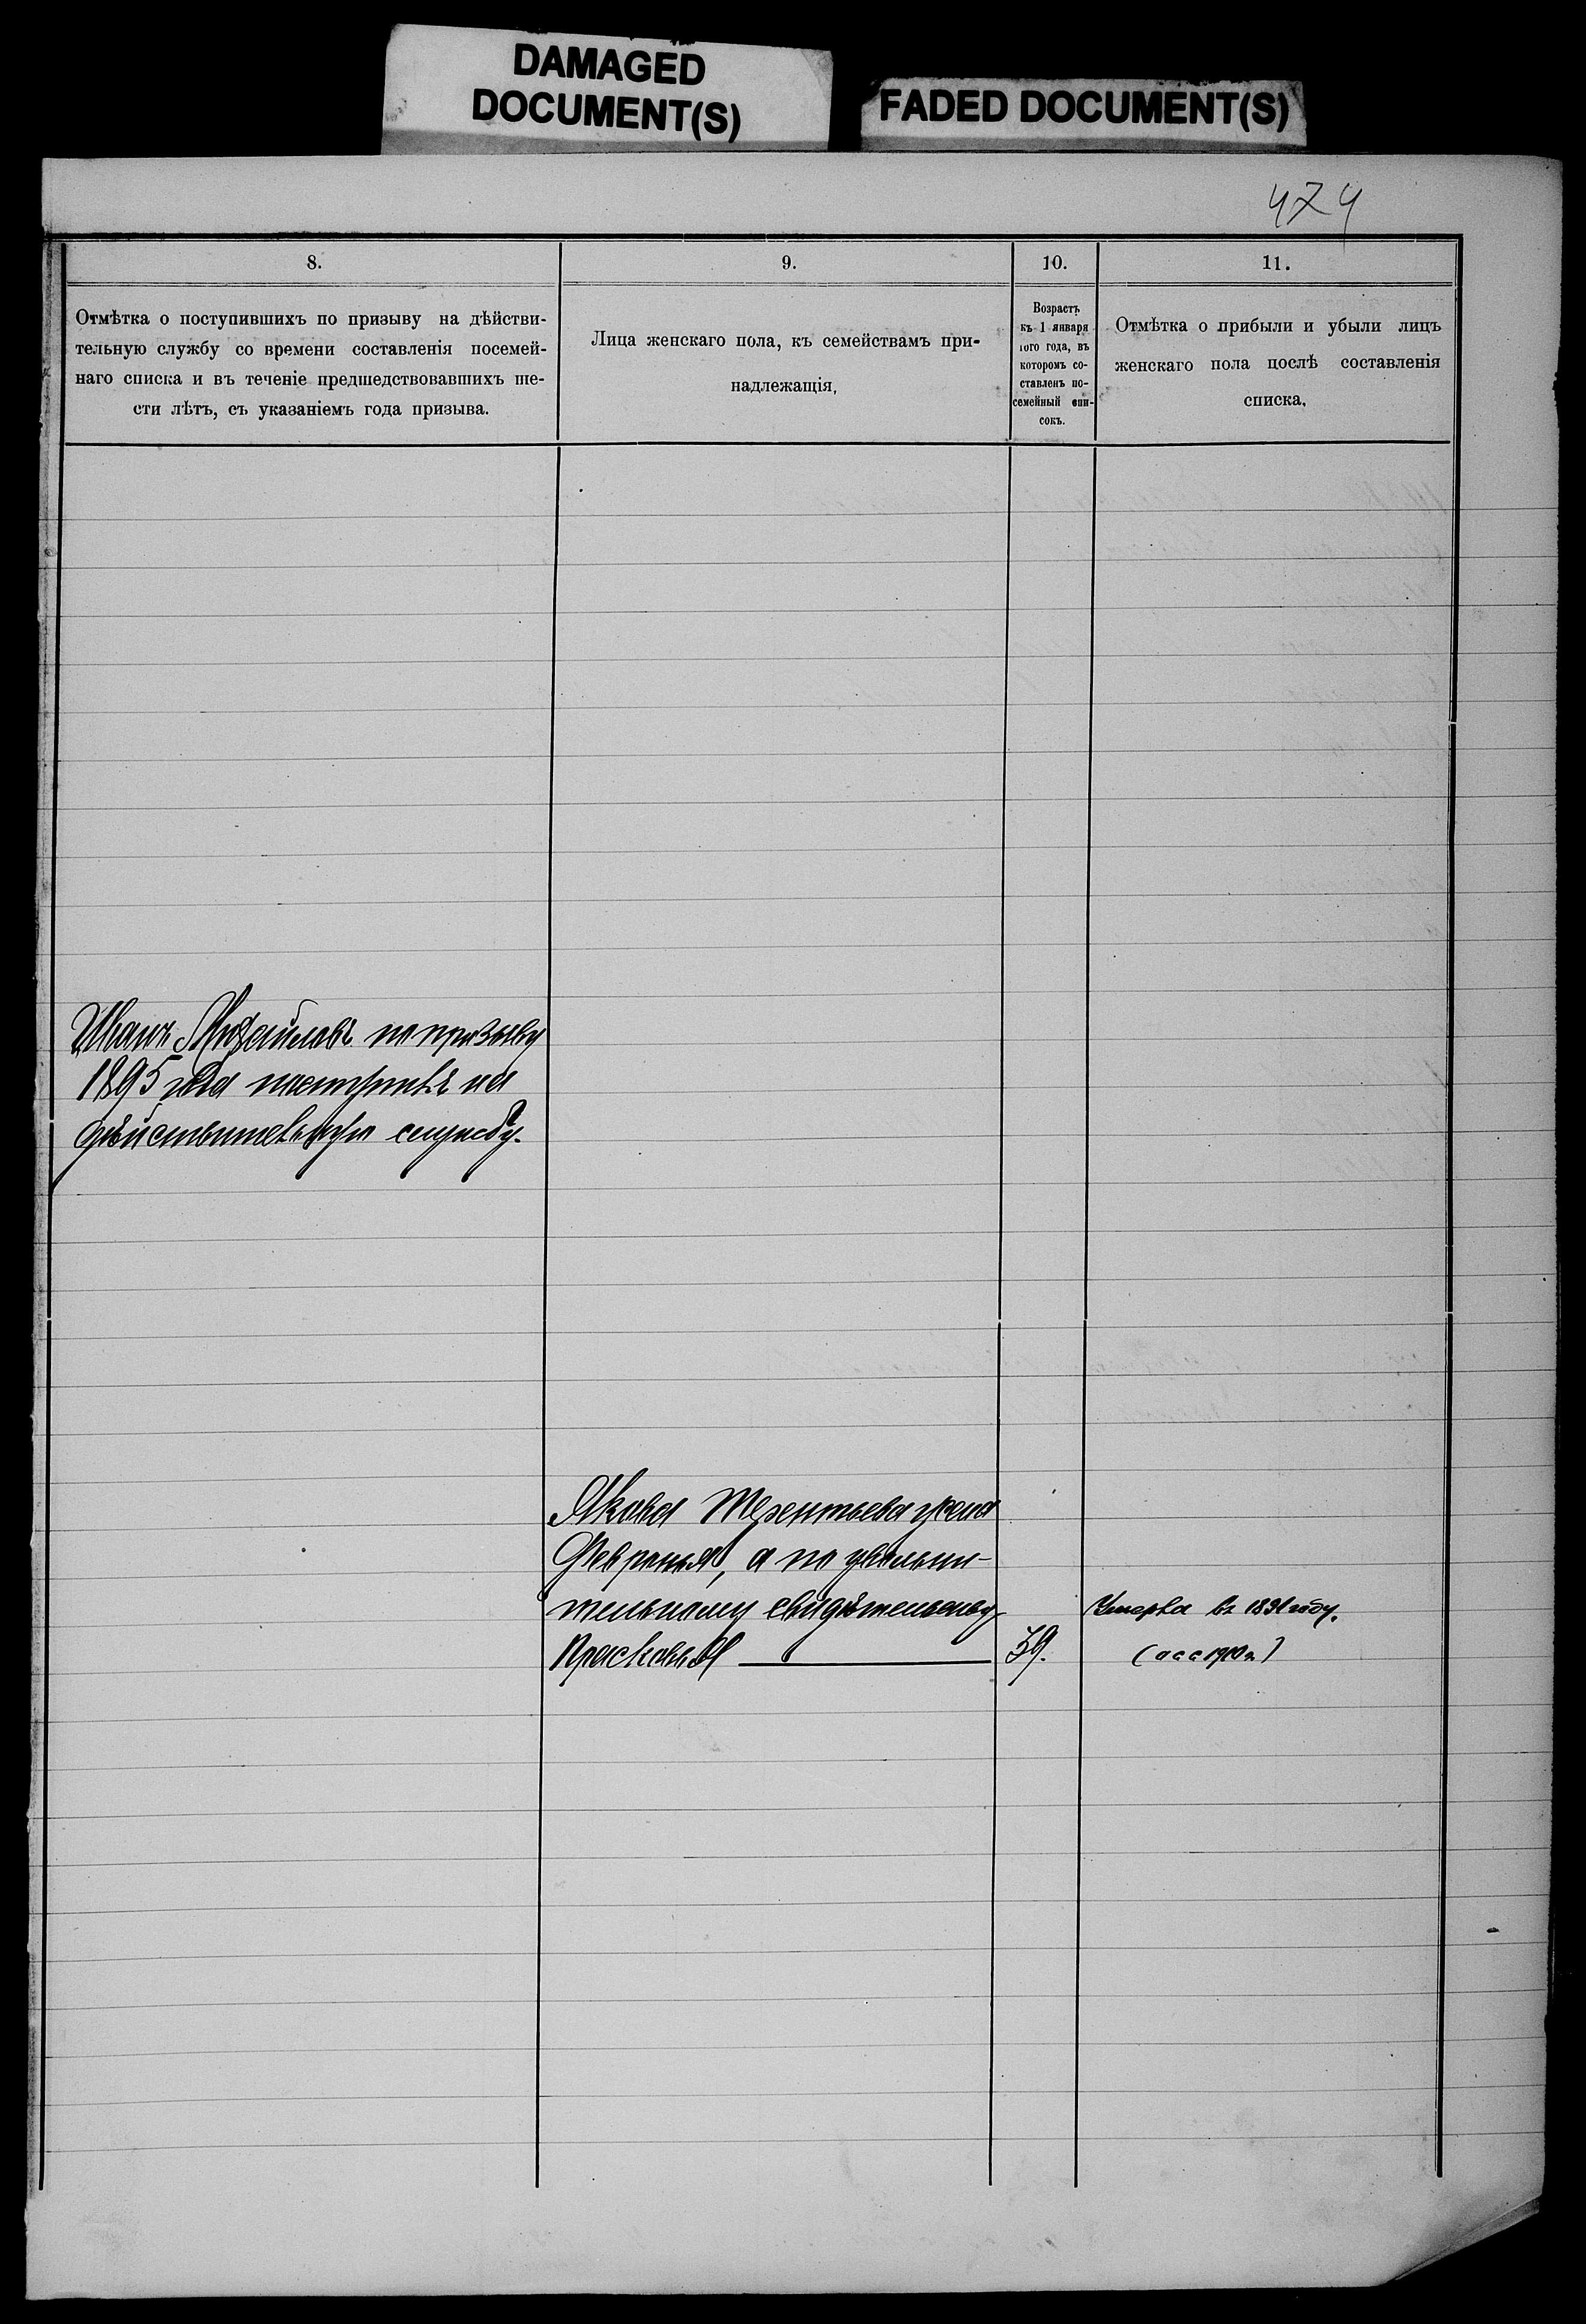 DAMAGED
DOCUMENT(S)
FADED DOCUMENT(S)
474
8.
9.
10.
11.
Отмѣтка о поступившихъ по призыву на дѣйстви-
тельную службу со времени составленія посемей-
наго списка и въ теченіе предшедствовавшихъ ше-
сти лѣтъ, съ указаніемъ года призыва.
Лица женскаго пола, къ семействамъ при-
надлежащія,
Возрастъ
къ 1 января
того года, въ
которомъ со-
ставленъ по-
семейный спи-
сокъ.
Отмѣтка о прибыли и убыли лицъ
женскаго пола послѣ составленія
списка,
Иванъ Михайловъ по призыву
1895 года поступилъ на
дѣйствительную службу.
Якова Терентьева жена
Февронья, а по увольни-
тельному свидѣтельству
Прасковья
39.
Умерла въ 1891 году.